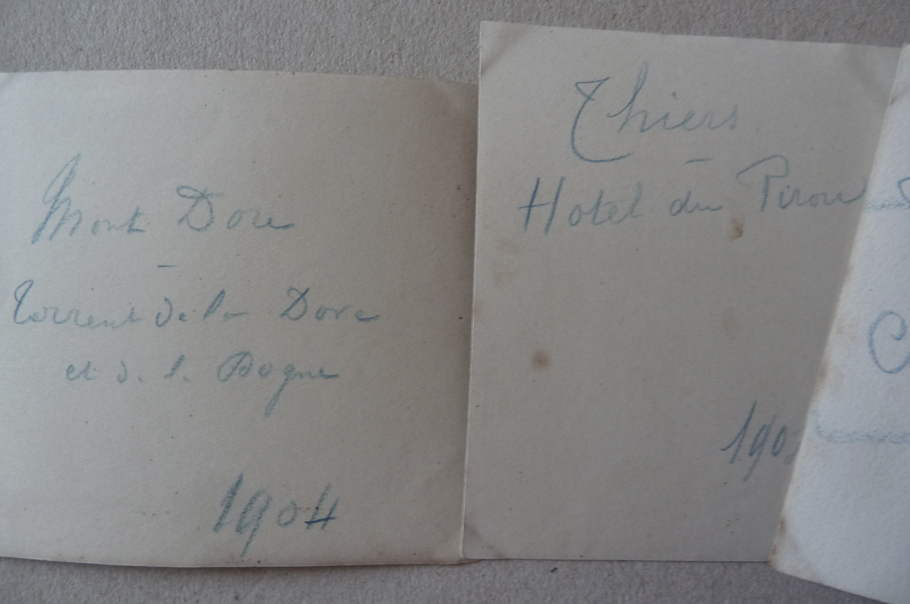 Mont Dore
-
Torrent de la Dore
et d. l. Dogne
1904
Thiers
-
Hotel du Pirou
190
C